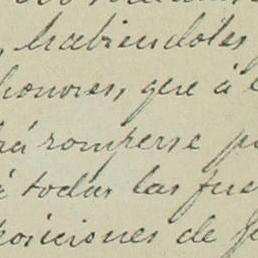 , habiendoles
honores, que á l
rá romperse p
á todas las fue
posiciones de